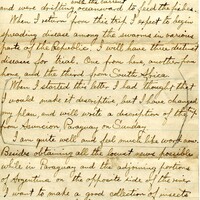 and were drifting
When I return from this trip I expect to begin
spreading disease among the swarms in various
parts of the Republic. I will have three distinct
diseases for trial. One from here, another from
home and the third from South Africa.
When I started this letter I had thought that
I would make it descriptive, but I have changed
my plan, and will write a description of the
from Asuncion, Paraguay on Sunday.
I am quite well and feel much like work now.
Besides obtaining all the locust news possible
while in Paraguay and the adjoining portions
of Argentina on the opposite side of the river
I want to make a good collection of insects